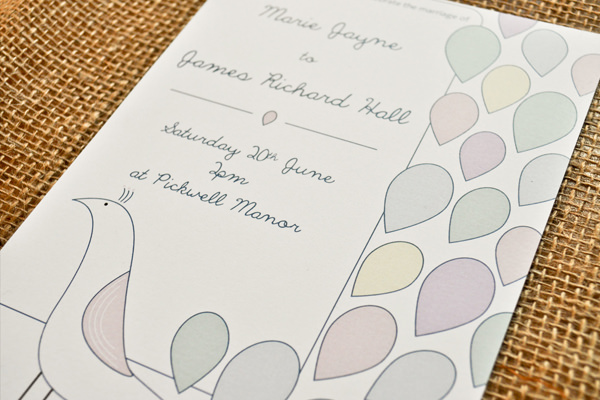 the marriage of
Marie Jayne
to
James Richard Hall
Saturday 20th June
2pm
at Pickwell Manor